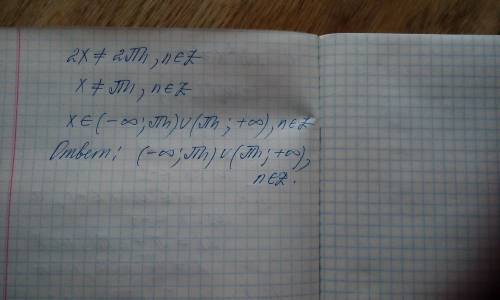 2x ≠ 2πn, n∈Z
x ≠ πn, n∈Z
x∈(-∞; πn)∪(πn; +∞), n∈Z
Ответ: (-∞; πn)∪(πn; +∞),
n∈Z.